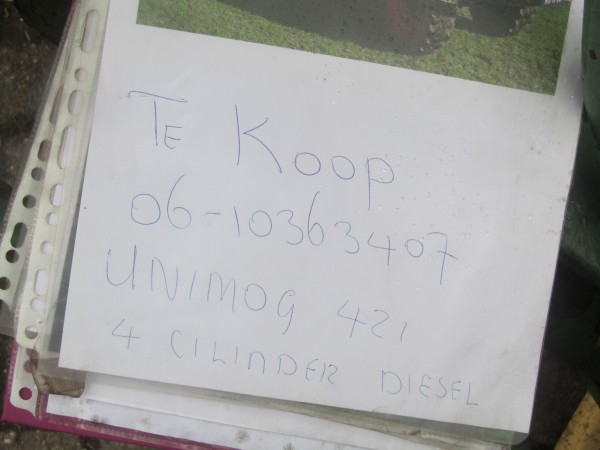 TE KOOP
06-10363407
UNIMOG 421
4 CILINDER DIESEL